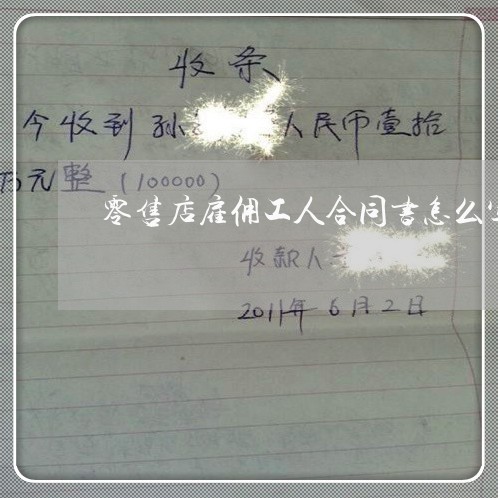 收条
今收到孙 人民币壹拾
万元整(100000)
零售店雇佣工人合同书怎么
收款人
2011年6月2日